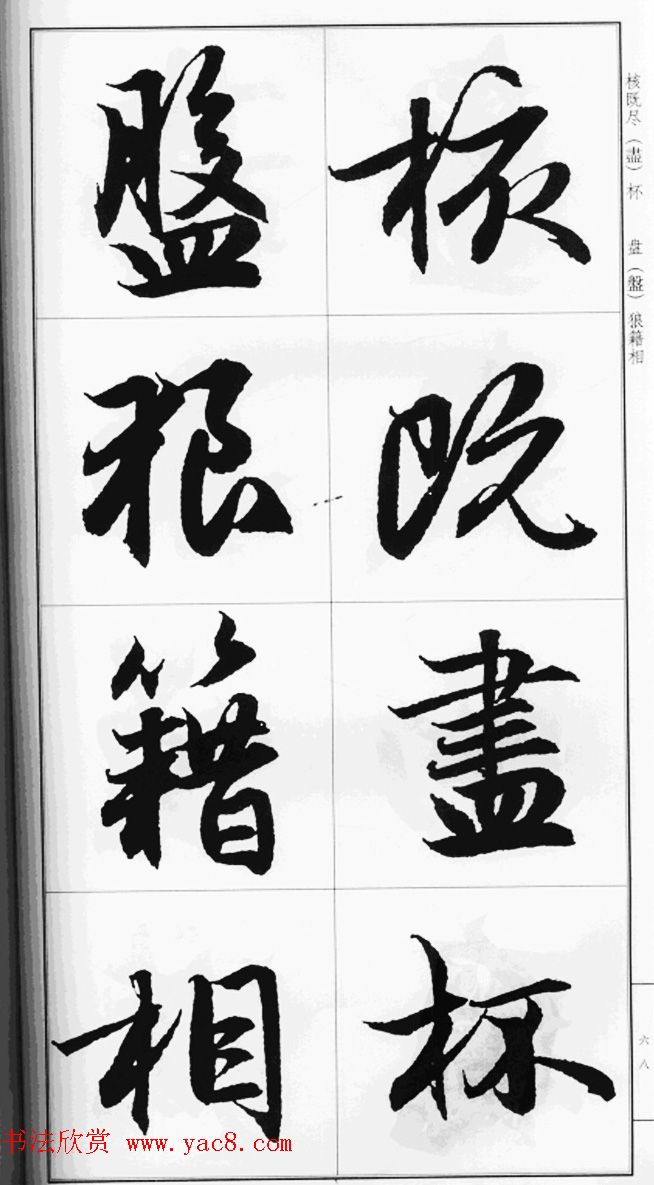 核既盡杯
盤狼籍相
核既尽（盡）杯　盘（盤）狼籍相
六八
书法欣赏 www.yac8.com